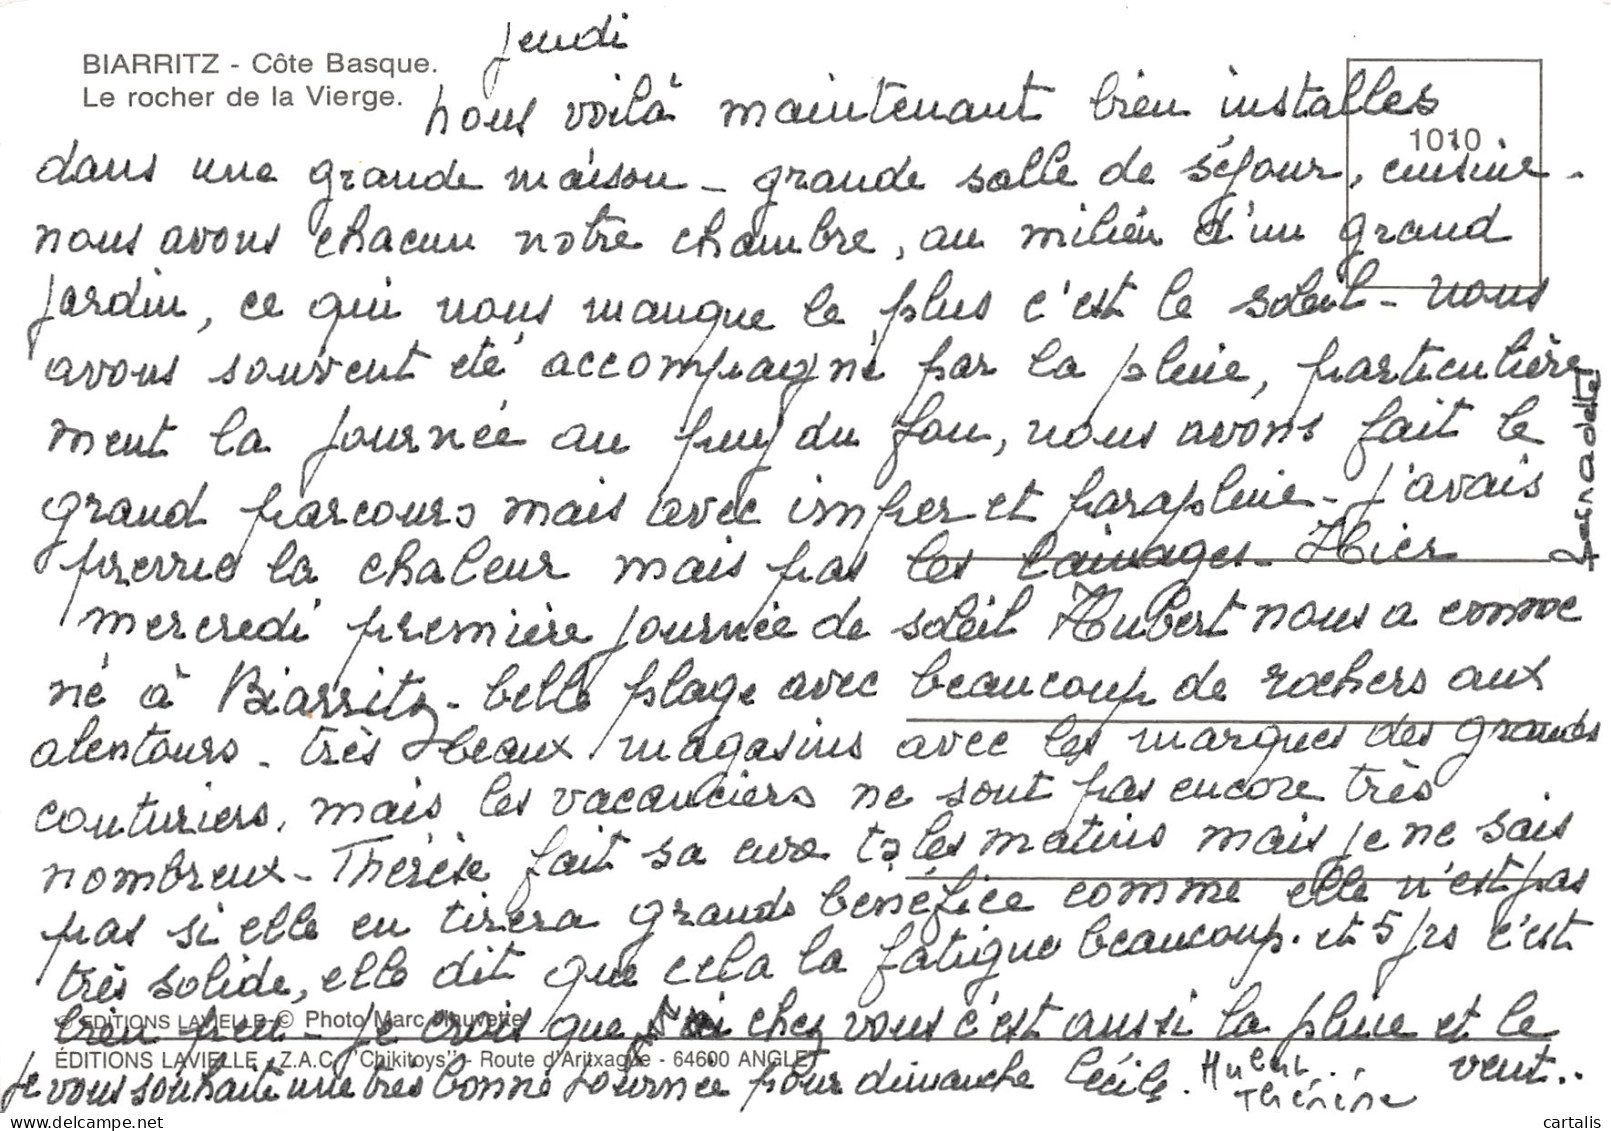 jeudi
BIARRITZ - Côte Basque.
Le rocher de la Vierge.
1010
nous voilà maintenant bien installes
dans une grande maison - grande salle de séjour, cuisine -
nous avons chacun notre chambre, au milieu d'un grand
jardin, ce qui nous manque le plus c'est le soleil - nous
avons souvent eté accompagné par la pluie, particulière
ment la journée au puy du fou, nous avons fait le
grand parcours mais avec imper et parapluie - j'avais
prévue la chaleur mais pas les lainages. Hier
mercredi première journée de soleil Hubert nous a emme
né à Biarritz - belle plage avec beaucoup de rochers aux
alentours - très beaux magasins avec les marques des grands
couturiers, mais les vacanciers ne sont pas encore très
nombreux - Thérèse fait sa cure ts les matins mais je ne sais
pas si elle en tirera grands bénéfice comme elle n'est pas
très solide, elle dit que cela la fatigue beaucoup. et 5 jrs c'est
bien peu - je crois que chez vous c'est aussi la pluie et le
vent..
© EDITIONS LAVIELLE - © Photo Marc
ÉDITIONS LAVIELLE - Z.A.C. "Chikitoys" - Route d'Aritxague - 64600 ANGLET
je vous souhaite une très bonne journée pour dimanche Cécile.
Hubert..
Thérèse
Bernadette
cartalis